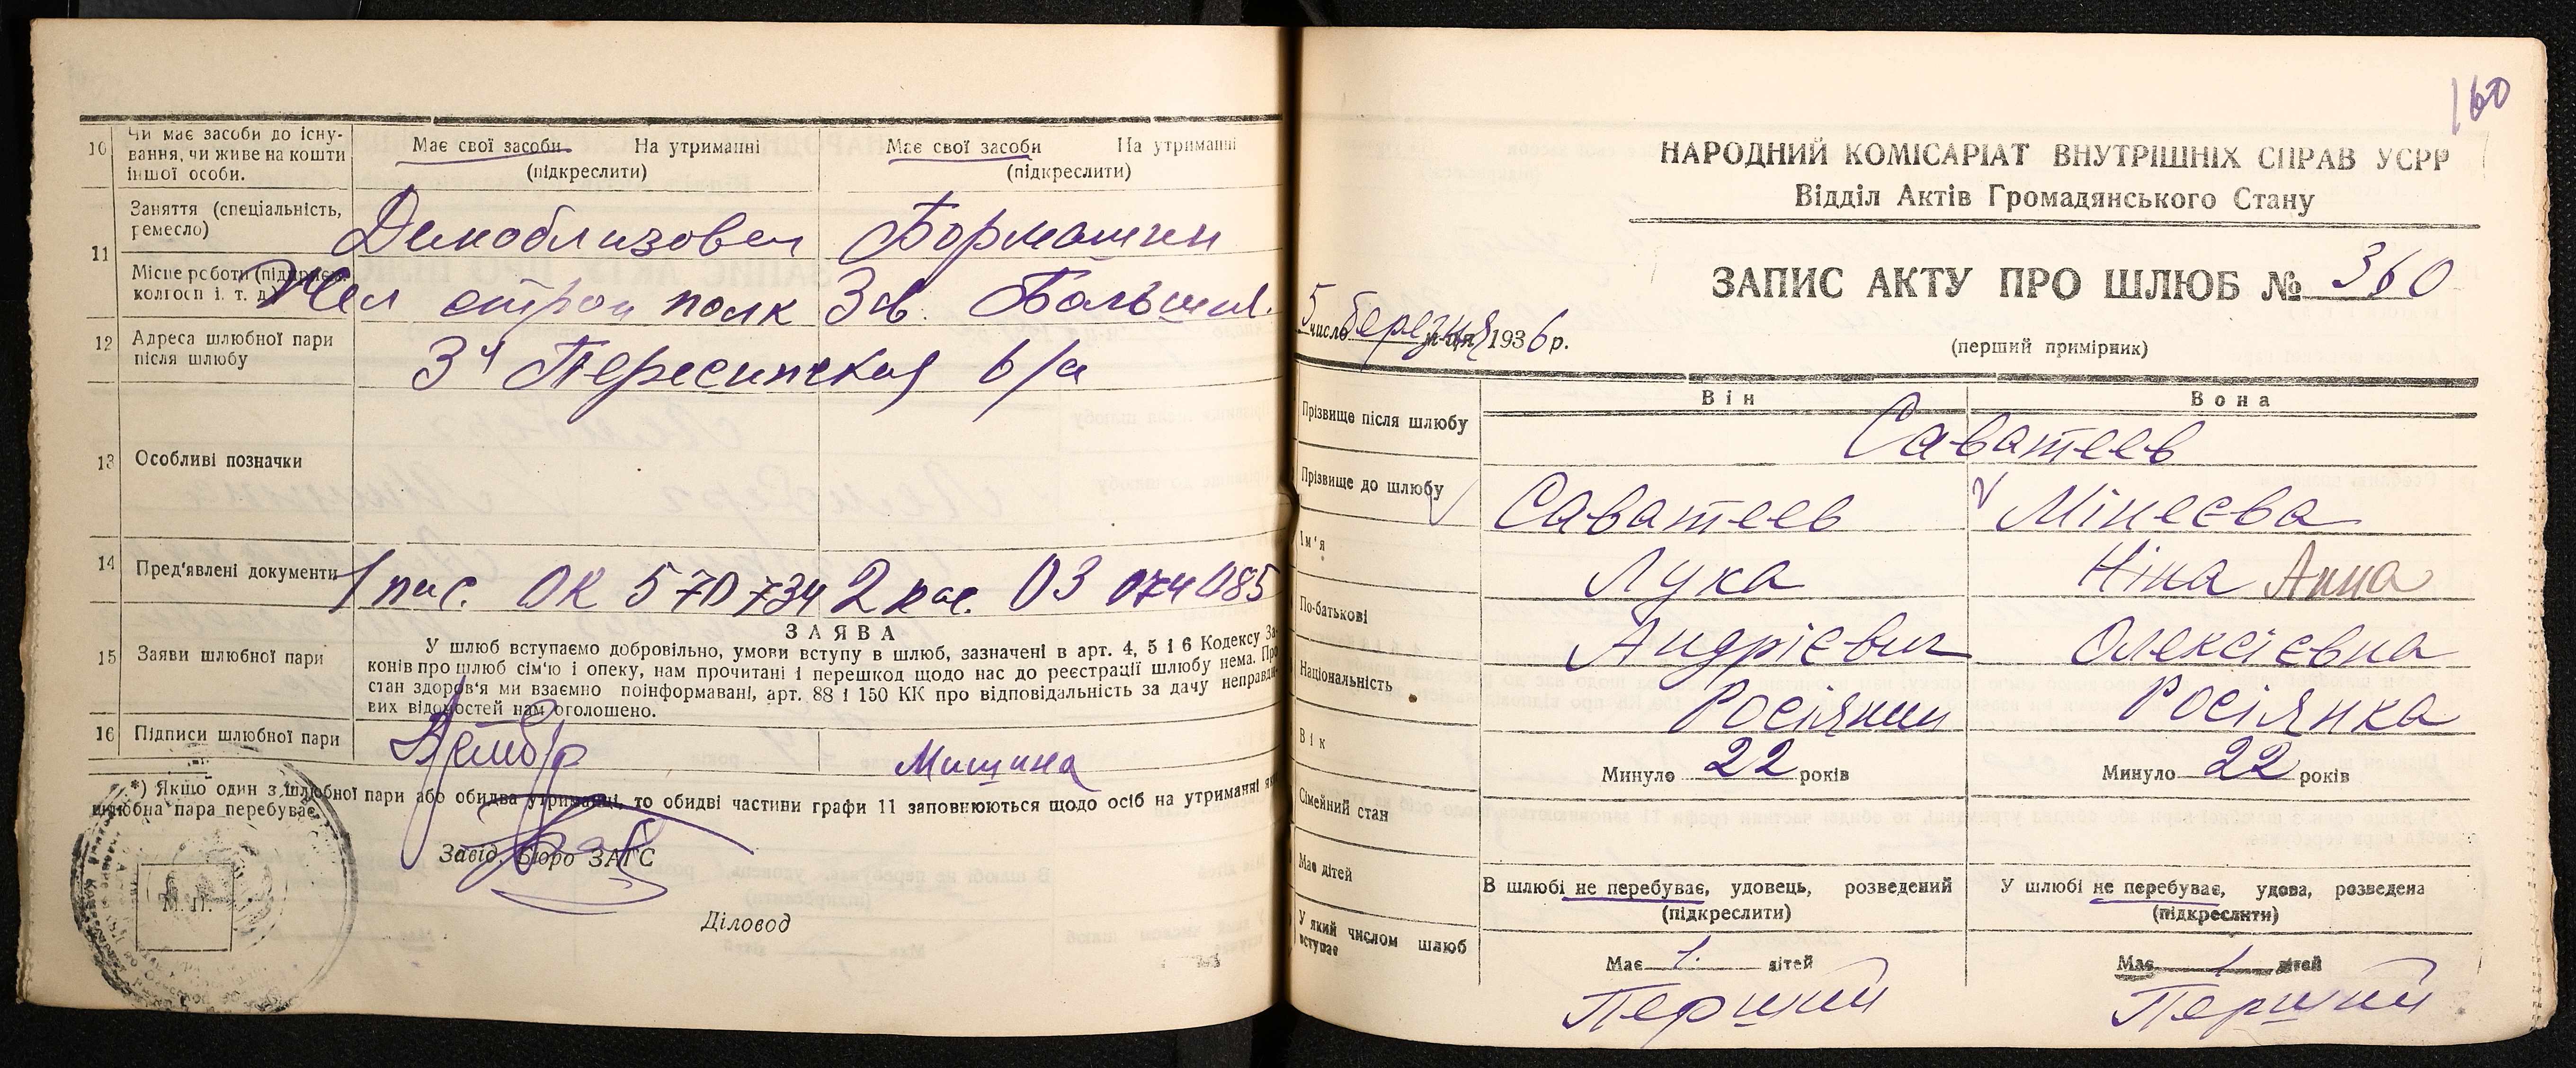 10
Чи має засоби до існу-
вання, чи живе на кошти
іншої особи.
Має свої засоби На утриманні
(підкреслити)
Має свої засоби На утриманні
(підкреслити)
11
Заняття (спеціальність,
ремесло)
Демоблизован
Бормашин
Місце роботи (підприєм.
колгосп і. т. д.)
Жел строй полк
Зав. Большев.
12
Адреса шлюбної пари
після шлюбу
3я Пересипская 6/а
13
Особливі позначки
14
Пред'явлені документи
1 пас. ОК 570734 2 пас. ОЗ 074085
15
Заяви шлюбної пари
ЗАЯВА
У шлюб вступаємо добровільно, умови вступу в шлюб, зазначені в арт. 4, 5 і 6 Кодексу За-
конів про шлюб сім'ю і опеку, нам прочитані і перешкод щодо нас до реєстрації шлюбу нема. Про
стан здоров'я ми взаємно поінформавані, арт. 88 і 150 КК про відповідальність за дачу неправди-
вих відомостей нам оголошено.
16
Підписи шлюбної пари
*) Якщо один з шлюбної пари або обидва утриманці, то обидві частини графи 11 заповнюються щодо осіб на утриманні яких
шлюбна пара перебуває
Завід. Бюро ЗАГС
М. П.
Діловод
160
НАРОДНИЙ КОМІСАРІАТ ВНУТРІШНІХ СПРАВ УСРР
Відділ Актів Громадянського Стану
ЗАПИС АКТУ ПРО ШЛЮБ № 360
5 число березня м-ця 1936 р.
(перший примірник)
Він
Вона
Прізвище після шлюбу
Саватеев
Прізвище до шлюбу
Саватеев
Мінеєва
Ім'я
Лука
Ніна Анна
По-батькові
Андрієвич
Олексієвна
Національність
Росіянин
Росіянка
Вік
Минуло 22 років
Минуло 22 років
Сімейний стан
В шлюбі не перебуває, удовець, розведений
(підкреслити)
У шлюбі не перебуває, удова, розведена
(підкреслити)
Має дітей
Має 1. дітей
Має 1 дітей
У який числом шлюб
вступає
Перший
Перший